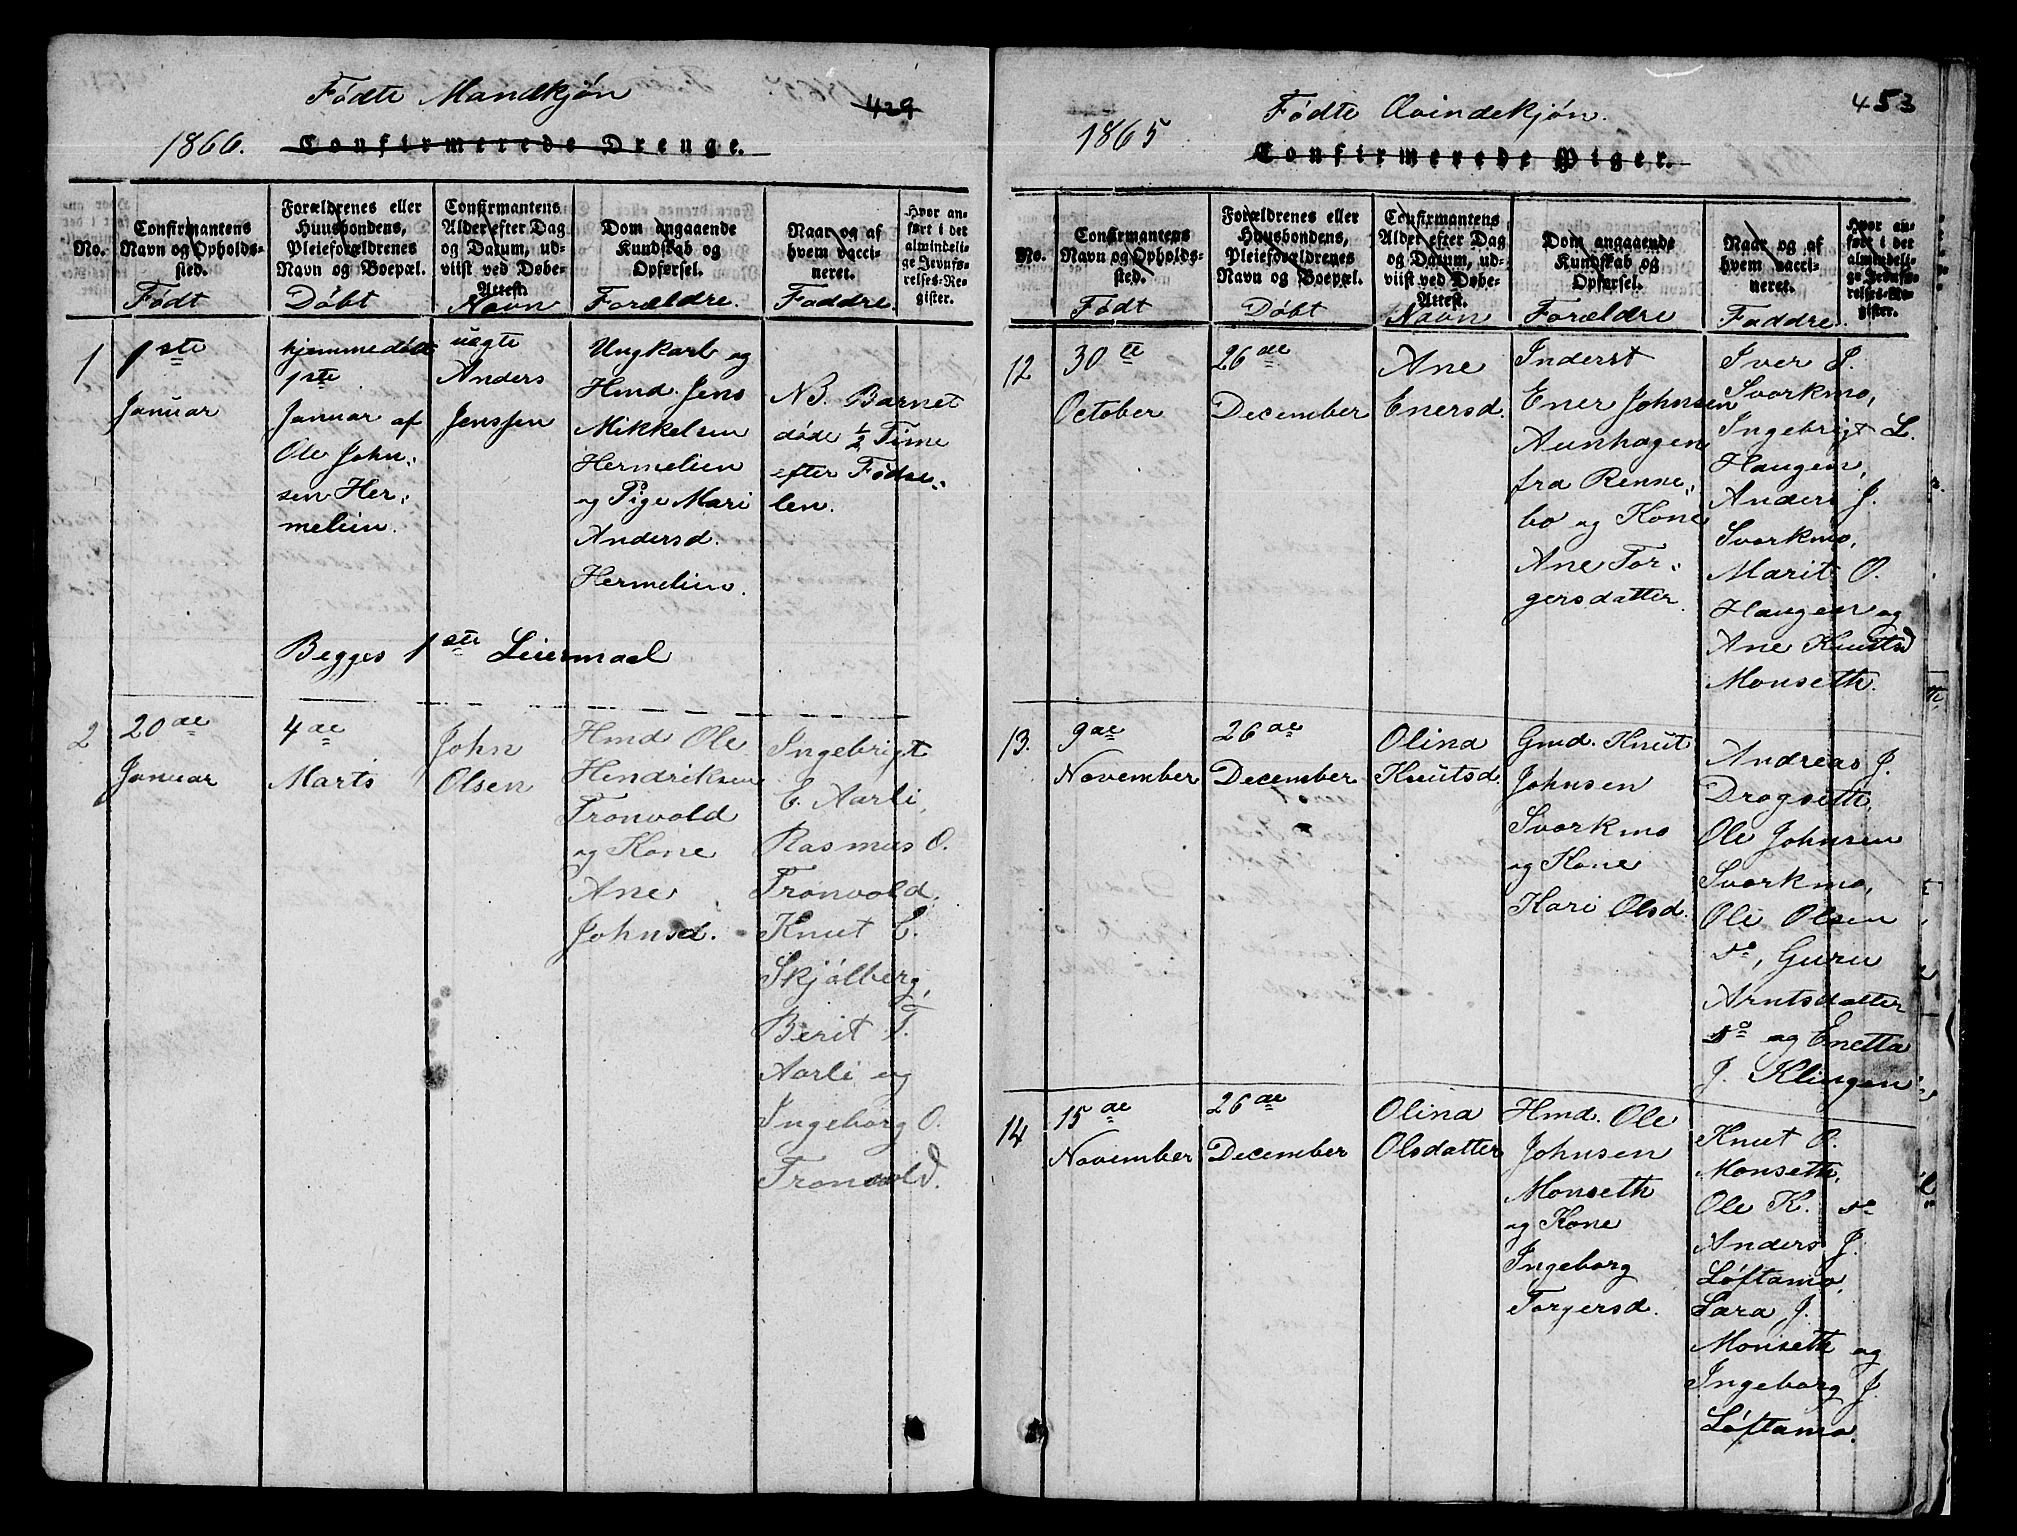 Fødte Mandkjøn
429
1866. Confirmerede Drenge.
No.
Confirmantens Navn og Opholdssted.
Født
Forældrenes eller Huusbondens, Pleieforældrenes Navn og Boepæl.
Døbt
Confirmantens Alder efter Dag og Datum, udviist ved Døbe-Attest.
Navn
Dom angaaende Kundskab og Opførsel.
Forældre.
Naar og af hvem vaccineret.
Faddre.
Hvor anført i det almindelige Jevnførelses-Register.
1
1ste
Januar
hjemmedøbt
1ste
Januar af
Ole John-
sen Her-
melien.
uægte
Anders
Jenssen
Ungkarl og
Hmd. Jens
Mikkelsen
Hermelien
og Pige Mari
Andersd.
Hermelien.
NB. Barnet
døde 1/2 Time
efter Fødse-
len.
Begges 1ste Leiermaal
2
20de
Januar
4de
Marts
John
Olsen
Hmd Ole
Hendriksen
Tronvold
og Kone
Ane
Johnsd.
Ingebrigt
E. Aarli,
Rasmus O.
Tronvold,
Knut E.
Skjølberg,
Berit T.
Aarli og
Ingeborg O.
Tronvold.
Fødte Qvindekjøn.
453
1865 Confirmerede Piger.
No.
Confirmantens Navn og Opholdssted.
Født
Forældrenes eller Huusbondens, Pleieforældrenes Navn og Boepæl.
Døbt
Confirmantens Alder efter Dag og Datum, udviist ved Døbe-Attest.
Navn
Dom angaaende Kundskab og Opførsel.
Forældre
Naar og af hvem vaccineret.
Faddre.
Hvor anført i det almindelige Jevnførelses-Register.
12
30te
October
26de
December
Ane
Enersd.
Inderst
Ener Johnsen
Aunhagen
fra Renne-
bo og Kone
Ane Tor-
gersdatter.
Iver J.
Svorkmo,
Ingebrigt L.
Haugen,
Anders J.
Svorkmo,
Marit O.
Haugen og
Ane Knutsd
Monseth.
13.
9de
November
26de
December
Olina
Knutsd.
Gmd. Knut
Johnsen
Svorkmo
og Kone
Kari Olsd.
Andreas J.
Drogseth,
Ole Johnsen
Svorkmo,
Ole Olsen
do, Guru
Arntsdatter
do og Enetta
J. Klingen
14
15de
November
26de
December
Olina
Olsdatter
Hmd. Ole
Johnsen
Monseth
og Kone
Ingeborg
Torgersd.
Knut O.
Monseth,
Ole K. do
Anders J.
Løftamo,
Sara J.
Monseth og
Ingeborg J.
Løftamo.